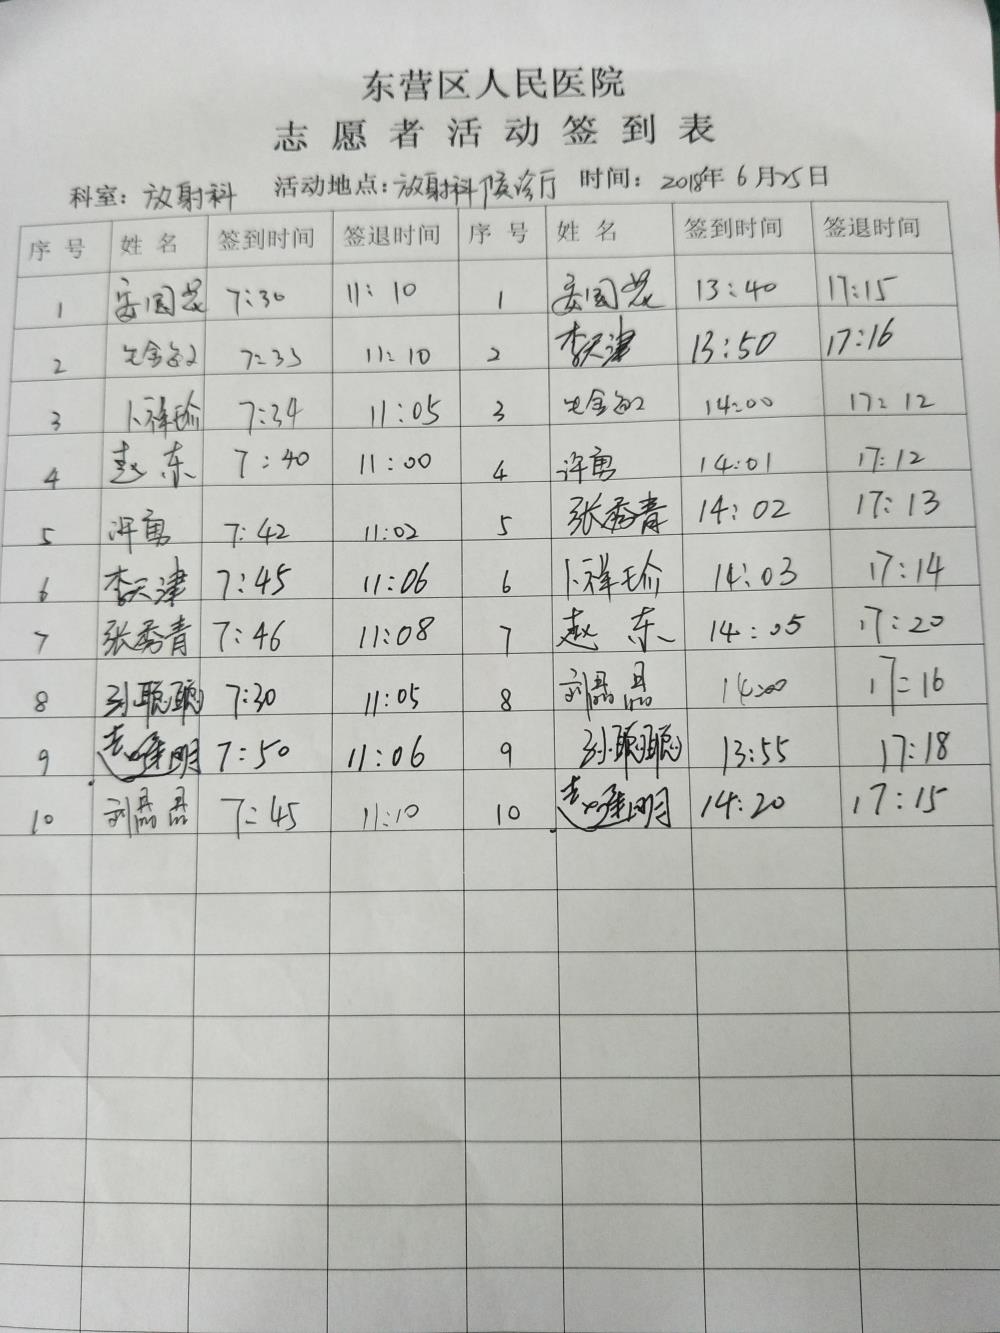 东营区人民医院
志愿者活动签到表
科室：放射科 活动地点：放射科候诊厅 时间：2018年6月25日
序号 姓名 签到时间 签退时间 序号 姓名 签到时间 签退时间
1 7:30 11:10 1 13:40 17:15
2 7:33 11:10 2 李天津 13:50 17:16
3 卜祥瑜 7:34 11:05 3 14:00 17:12
4 赵东 7:40 11:00 4 许勇 14:01 17:12
5 许勇 7:42 11:02 5 张秀青 14:02 17:13
6 李天津 7:45 11:06 6 卜祥瑜 14:03 17:14
7 张秀青 7:46 11:08 7 赵东 14:05 17:20
8 孙聪聪 7:30 11:05 8 刘晶晶 14:00 17:16
9 7:50 11:06 9 孙聪聪 13:55 17:18
10 刘晶晶 7:45 11:10 10 14:20 17:15